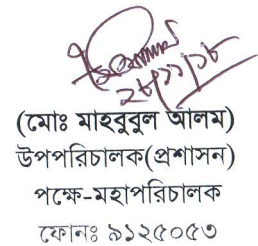 ২৮/১১/১৮
(মোঃ মাহবুবুল আলম)
উপপরিচালক(প্রশাসন)
পক্ষে-মহাপরিচালক
ফোনঃ ৯১২৫০৫৩